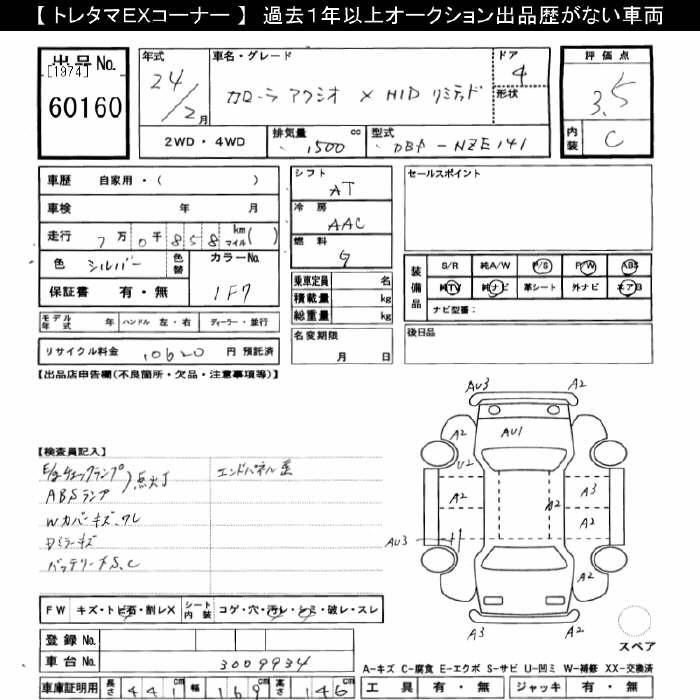 【 トレタマEXコーナー 】 過去1年以上オークション出品歴がない車両
出品No.
[1974]
60160
年式
24/2月
車名・グレード
カローラ アクシオ X HID リミテッド
ドア
4
形状
評価点
3.5
内装
C
2WD・4WD
排気量
1500 cc
型式
DBA-NZE141
車歴
自家用・( )
車検
年 月
走行
7万0千858 km マイル( )
色
シルバー
色替
カラーNo.
1F7
保証書
有・無
モデル年式
年
ハンドル 左・右
ディーラー・並行
リサイクル料金
10620
円 預託済
シフト
AT
冷房
AAC
燃料
G
乗車定員
名
積載量
kg
総重量
kg
名変期限
月 日
セールスポイント
装備品
S/R
純A/W
P/S
P/W
ABS
純TV
純ナビ
革シート
外ナビ
エアB
ナビ型番:
後日品
【出品店申告欄(不良箇所・欠品・注意事項等)】
【検査員記入】
E/gチェックランプ
ABSランプ
点灯
エンドパネル歪
Wカバーキズ、ワレ
Dミラーキズ
AU3
A2
A2
AU1
A2
U2
A2
A3
A2
A2
AU3
A2
A3
A2
スペア
FW
キズ・トビ石・割レX
シート内装
コゲ・穴・汚レ・シミ・破レ・スレ
登録No.
車台No.
3009934
車庫証明用
長さ
441
cm
幅
169
cm
高さ
146
cm
A-キズ C-腐食 E-エクボ S-サビ U-凹ミ W-補修 XX-交換済
工具
有・無
ジャッキ
有・無